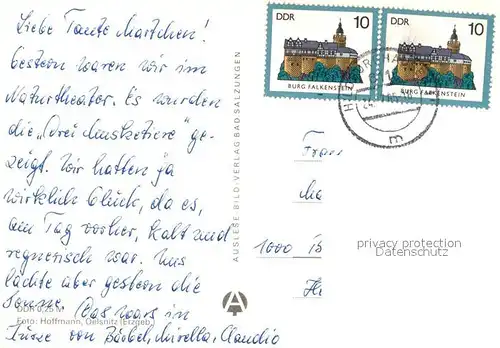 Liebe Tante Martchen!
Gestern waren wir im
Naturtheater. Es wurden
die „Drei Musketiere" ge-
zeigt. Wir hatten ja
wirklich Glück, da es,
am Tag vorher, kalt und
regnerisch war. Uns
lachte aber gestern die
Sonne. Das wars in
Kürze von Bärbel, Mirella, Claudio
DDR 0,25 M
Foto: Hoffmann, Oelsnitz (Erzgeb.)
AUSLESE-BILD-VERLAG BAD SALZUNGEN
DDR 10
BURG FALKENSTEIN
DDR 10
BURG FALKENSTEIN
m
Frau
Ma
1000
privacy protection
Datenschutz